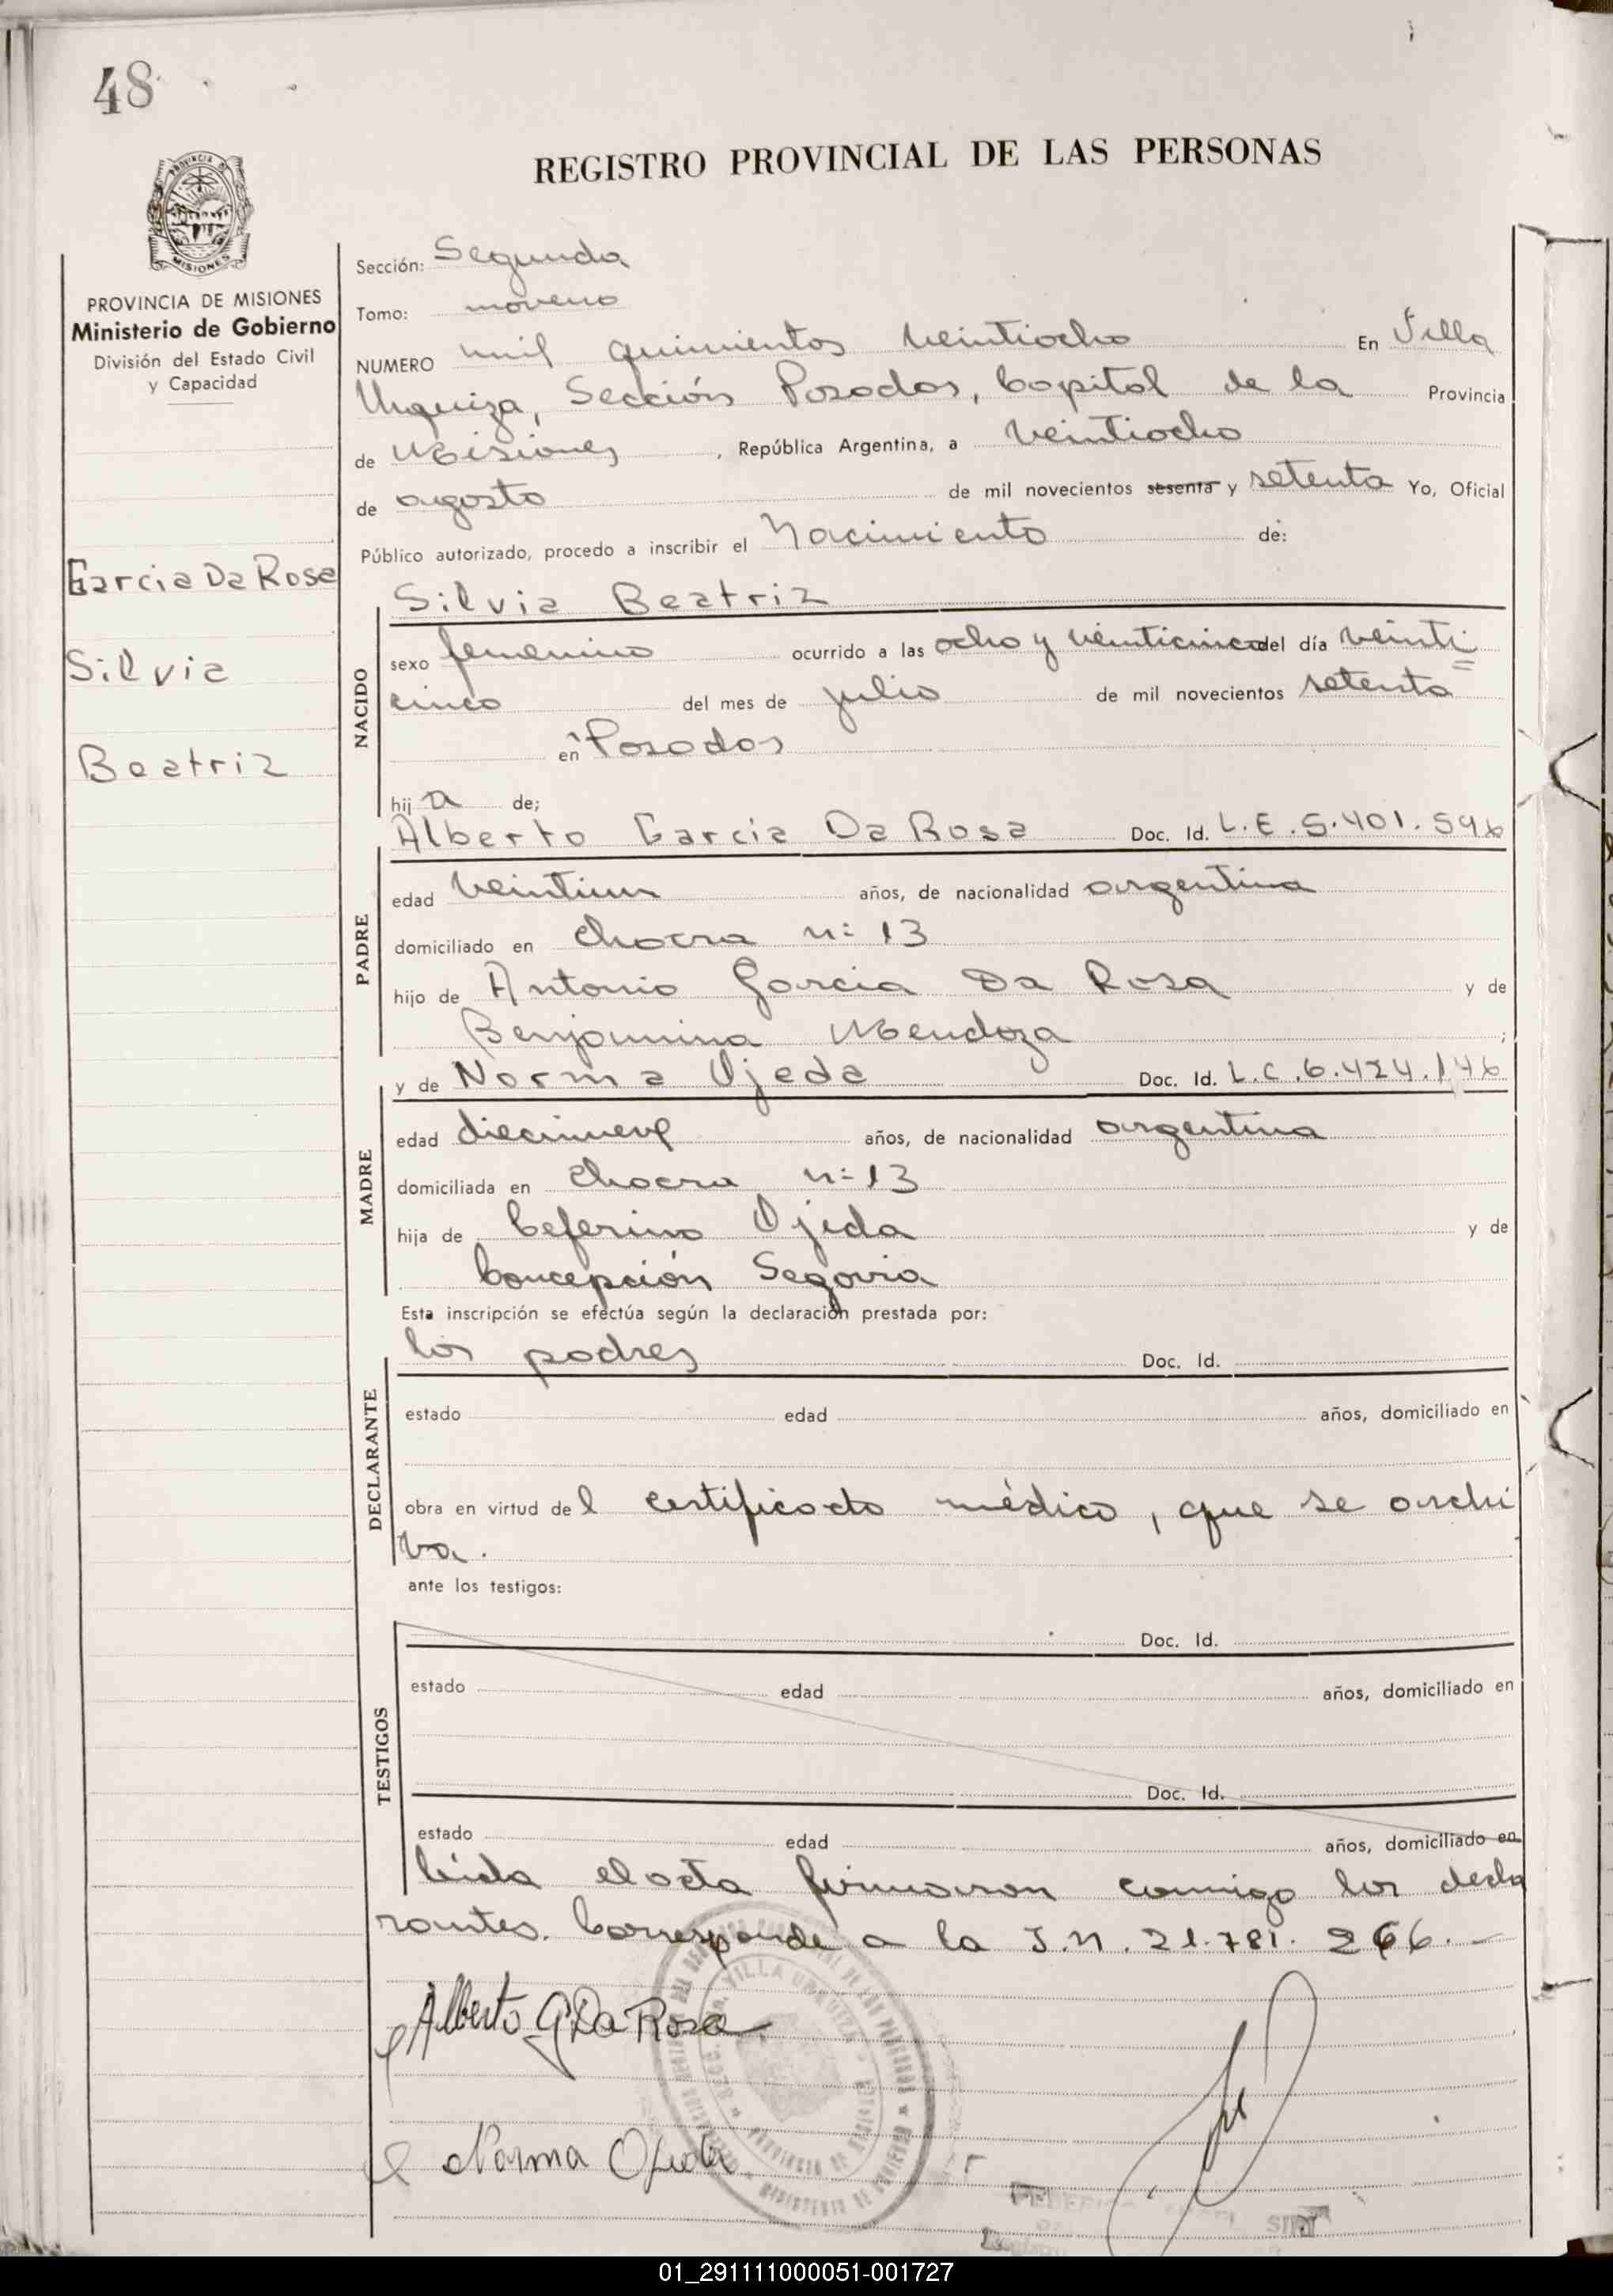 48
REGISTRO PROVINCIAL DE LAS PERSONAS
PROVINCIA DE MISIONES
Ministerio de Gobierno
División del Estado Civil
y Capacidad
Garcia Da Rosa
Silvia
Beatriz
Sección: Segunda
Tomo: noveno
NUMERO mil quinientos veintiocho En Villa
Urquiza, Sección Posadas, Capital de la Provincia
de Misiones, República Argentina, a veintiocho
de agosto de mil novecientos sesenta y setenta Yo, Oficial
Público autorizado, procedo a inscribir el Nacimiento de:
Silvia Beatriz
NACIDO
sexo femenino ocurrido a las ocho y veinticinco del día veinti
cinco del mes de julio de mil novecientos setenta
en Posadas
hij a de;
Alberto Garcia Da Rosa Doc. Id. L.E. 5.401.596
PADRE
edad veintiun años, de nacionalidad argentina
domiciliado en chacra n: 13
hijo de Antonio Garcia Da Rosa y de
Benjamina Mendoza;
y de Norma Ojeda Doc. Id. L.C. 6.424.146
MADRE
edad diecinueve años, de nacionalidad argentina
domiciliada en chacra n: 13
hija de Ceferino Ojeda y de
Concepción Segovia
Esta inscripción se efectúa según la declaración prestada por:
los padres Doc. Id.
DECLARANTE
estado edad años, domiciliado en
obra en virtud del certificado médico, que se archi
va.
ante los testigos:
Doc. Id.
TESTIGOS
estado edad años, domiciliado en
Doc. Id.
estado edad años, domiciliado en
leída el acta firmaron conmigo los decla
rantes. Corresponde a la I.N. 21.781.266.-
Alberto G Da Rosa
Norma Ojeda
01_291111000051-001727